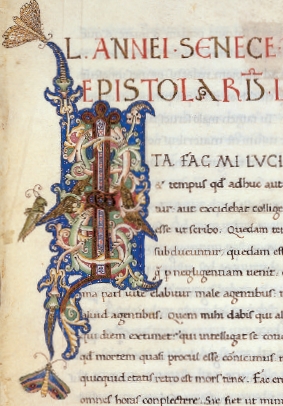 L. ANNEI · SENECE ·
EPISTOLARṼ L
ITA FAC MI LVCI
& tempus qd adhuc aut
tur aut excidebat collige
esse ut scribo. Quedam te
subducuntur, quedam eff
q̃ p negligentiam uenit. e
ma pars uite elabitur male agentibus.
aliud agentibus. Quem mihi dabis qui al
qui diem extimet? qui intelligat se coti
qd mortem quasi procul esse conicimus
quicquid etatis retro est mors tenet. Fac er
omnes horas conplectere. Sic fiet ut min